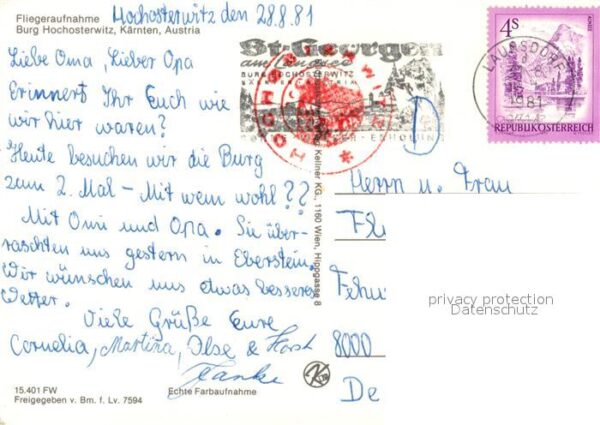 Fliegeraufnahme
Burg Hochosterwitz, Kärnten, Austria
Hochosterwitz den 28.8.81
Liebe Oma, Lieber Opa
Erinnert Ihr Euch wie
wir hier waren?
Heute besuchen wir die Burg
zum 2. Mal - Mit wem wohl??
Mit Omi und Opa. Sie über-
raschten uns gestern in Eberstein.
Wir wünschen uns etwas besseres
Wetter.
Viele Grüße Eure
Cornelia, Martina, Ilse & Horst
Hanke
15.401 FW
Freigegeben v. Bm. f. Lv. 7594
Echte Farbaufnahme
Kellner KG., 1160 Wien, Hippgasse 8
St. Georgen
am Längsee
BURG HOCHOSTERWITZ
HOCHOSTERWITZ
4S
REPUBLIK ÖSTERREICH
LAUNSDORF
1981
D
Herrn u. Frau
8000
De
privacy protection
Datenschutz